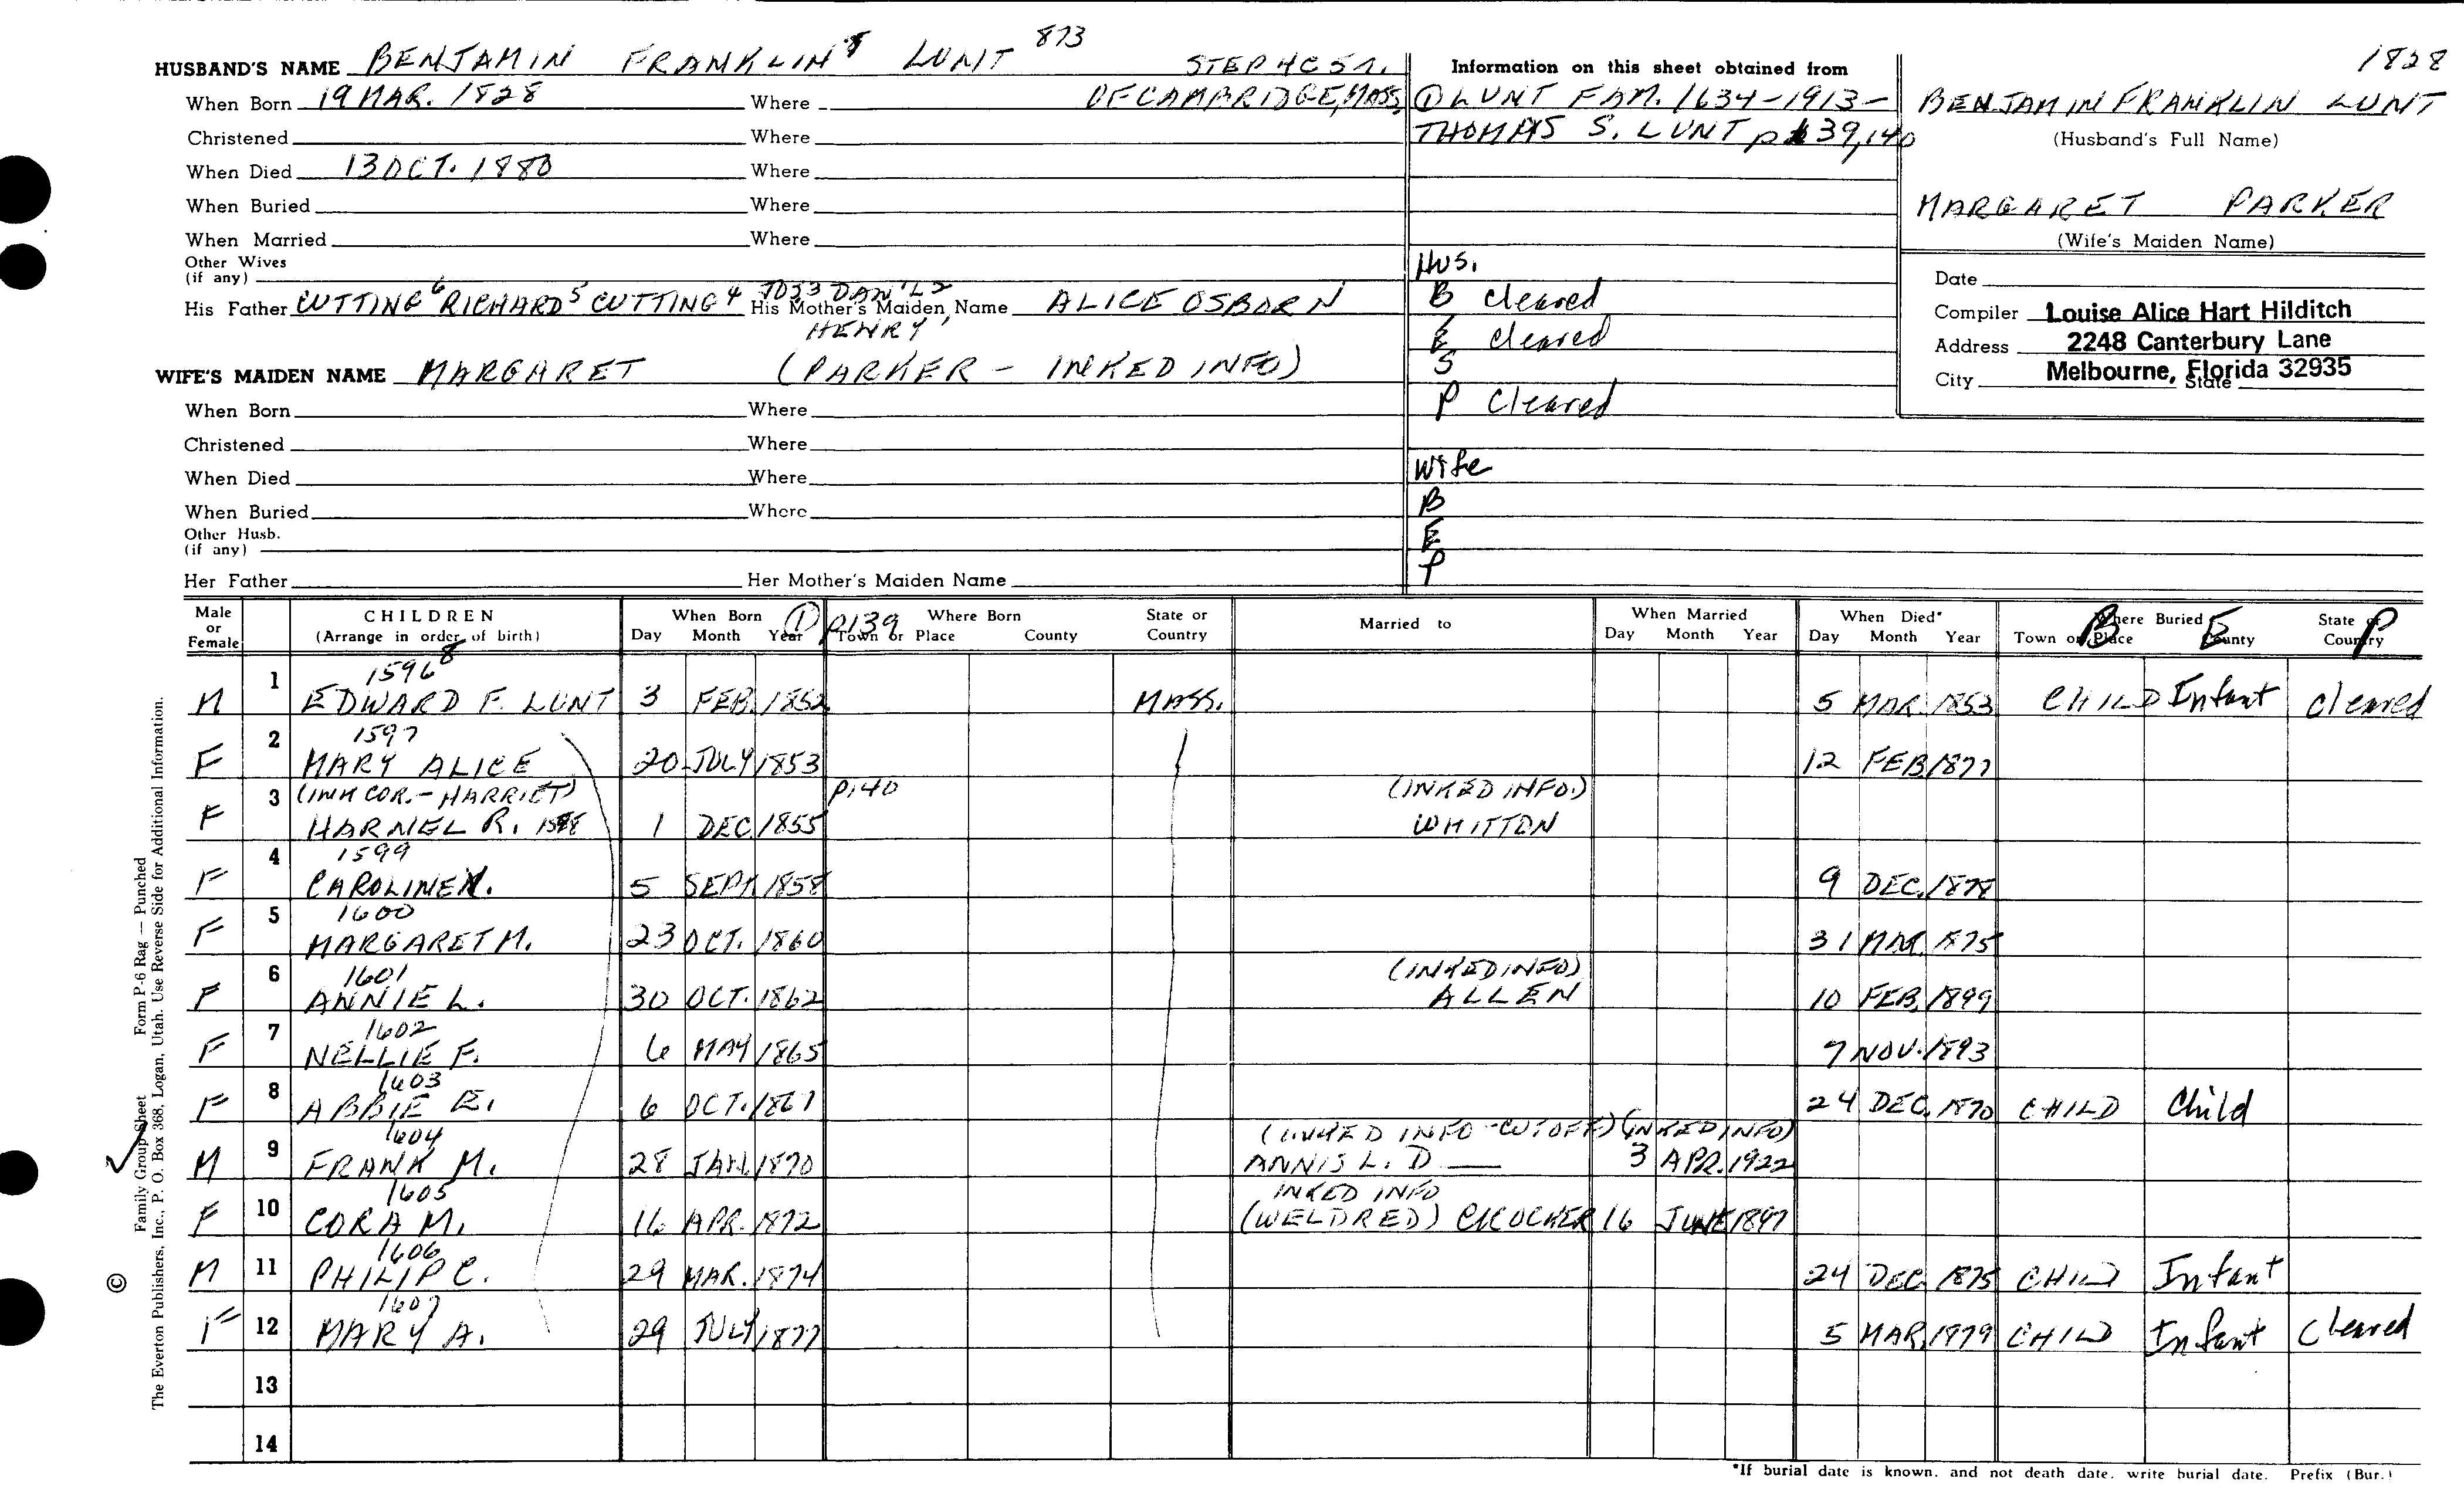 HUSBAND'S NAME BENJAMIN FRANKLIN LUNT 873
When Born 19 MAR. 1828 Where OF CAMBRIDGE, MASS,
Christened Where
When Died 13 OCT. 1880 Where
When Buried Where
When Married Where
Other Wives
(if any)
His Father CUTTING 6 RICHARD 5 CUTTING 4 JOS 3 DAN'L 2 HENRY 1 His Mother's Maiden Name ALICE OSBORN
WIFE'S MAIDEN NAME MARGARET (PARKER - INKED INFO)
When Born Where
Christened Where
When Died Where
When Buried Where
Other Husb.
(if any)
Her Father Her Mother's Maiden Name
Information on this sheet obtained from
① LUNT FAM. 1634-1913-
THOMAS S. LUNT p 139,140
HUS.
B cleared
E cleared
S
P Cleared
Wife
B
E
P
1828
BENJAMIN FRANKLIN LUNT
(Husband's Full Name)
MARGARET PARKER
(Wife's Maiden Name)
Date
Compiler Louise Alice Hart Hilditch
Address 2248 Canterbury Lane
City Melbourne, Florida 32935 State
Male or Female
CHILDREN
(Arrange in order of birth)
When Born ①
Day Month Year
P139 Where Born
Town or Place County
State or Country
Married to
When Married
Day Month Year
When Died*
Day Month Year
Where Buried
Town or Place County State or Country
B E P
1596 8
M 1 EDWARD F. LUNT 3 FEB. 1852 MASS. 5 MAR. 1853 CHILD Infant cleared
1597
F 2 MARY ALICE 20 JULY 1853 12 FEB 1877
(INK COR. - HARRIET) P140 (INKED INFO.)
F 3 HARNIEL R. 1598 1 DEC 1855 WHITTON
1599
F 4 CAROLINE 5 SEPT. 1858 9 DEC. 1878
1600
F 5 MARGARET M. 23 OCT. 1860 31 MAR. 1875
1601 (INKED INFO)
F 6 ANNIE L. 30 OCT. 1862 ALLEN 10 FEB. 1899
1602
F 7 NELLIE F. 6 MAY 1865 7 NOV. 1893
1603
F 8 ABBIE E. 6 OCT. 1867 24 DEC. 1870 CHILD Child
1604 (INKED INFO - CUTOFF) (INKED INFO)
M 9 FRANK M. 28 JAN. 1870 ANNIS L. D 3 APR. 1922
1605 INKED INFO
F 10 CORA M. 16 APR. 1872 (WELDRED) 16 JUNE 1897
1606
M 11 PHILIP C. 29 MAR. 1874 24 DEC. 1875 CHILD Infant
1607
F 12 MARY A. 29 JULY 1877 5 MAR. 1879 CHILD Infant Cleared
13
14
*If burial date is known, and not death date, write burial date. Prefix (Bur.)
© Family Group Sheet Form P-6 Rag — Punched
The Everton Publishers, Inc., P. O. Box 368, Logan, Utah. Use Reverse Side for Additional Information.